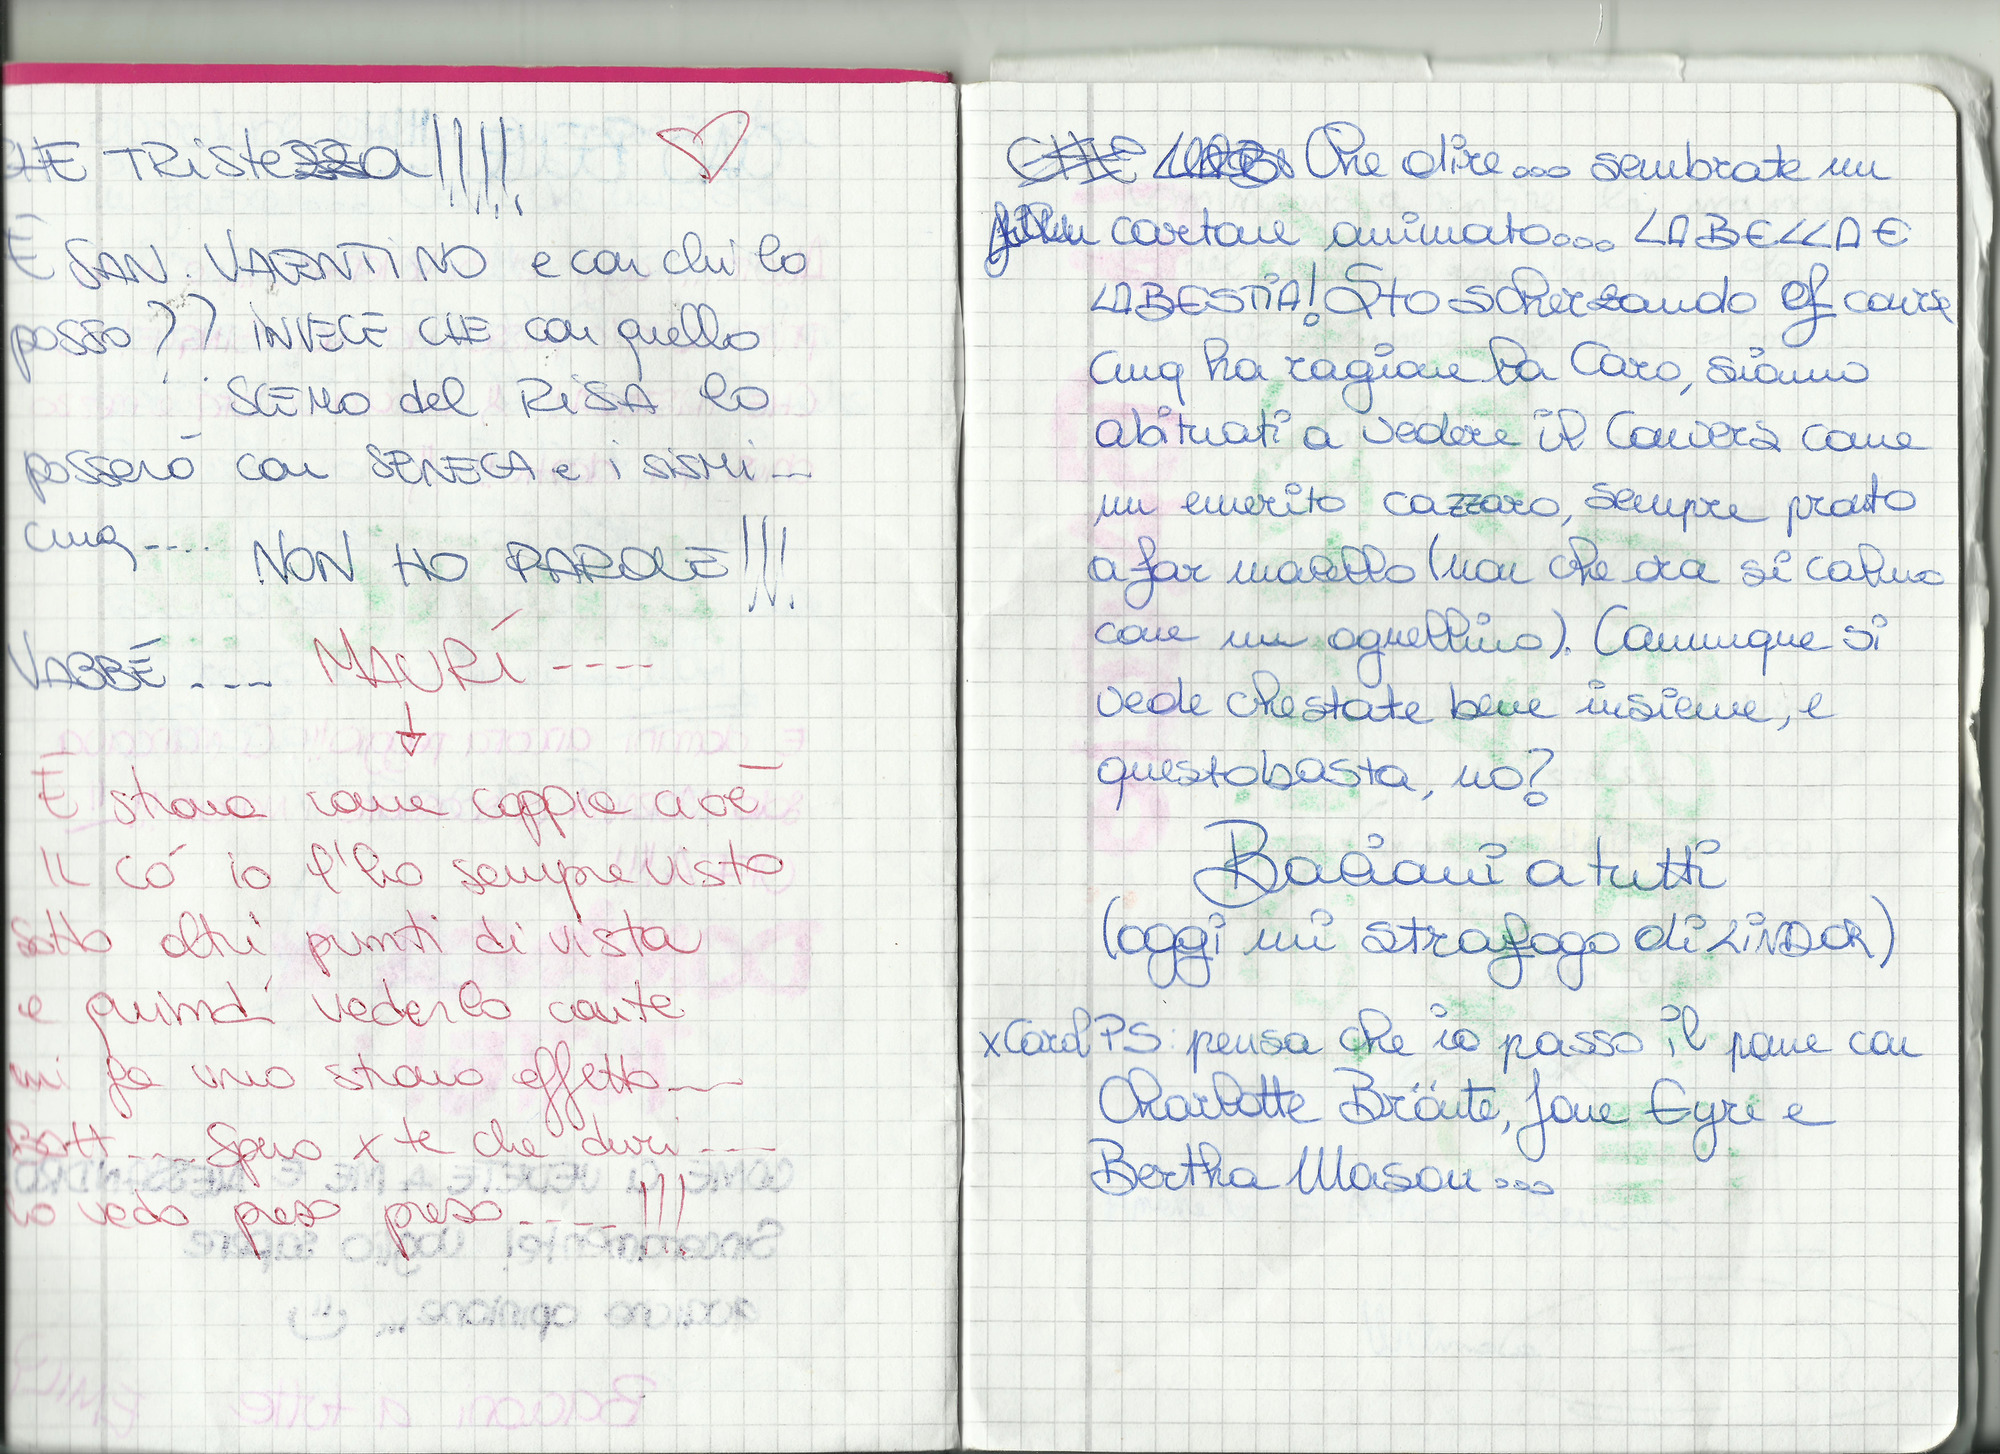 CHE TRISTEZZA!!!!
È SAN. VALENTINO e con chi lo
passo?? INVECE CHE con quello
SCEMO del RISA lo
passerò con SENECA e i sismi...
cmq.... NON HO PAROLE!!!
VABBÈ .... MAURÍ ----
È strano come coppia cioè
IL Có io l'ho sempre visto
sotto altri punti di vista
e quindi vederlo
mi fa uno strano effetto....
.... Spero x te che duri ----
lo vedo preso preso.....!!!
Che dire... sembrate un
cartone animato... LA BELLA E
LA BESTIA! Sto scherzando of course
Cmq ha ragione la Caro, siamo
abituati a vedere il Convers come
un emerito cazzaro, sempre pronto
a far macello (non che ora si calmo
come un agnellino). Comunque si
vede che state bene insieme, e
questo basta, no?
Bacioni a tutti
(oggi mi strafogo di LINDOR)
xCarol PS: pensa che io passo il pome con
Charlotte Brönte, Jane Eyre e
Bertha Mason...
COME CI VEDETE A ME E ALESSANDRO
Sinceramente! Voglio sapere
opinione...
Bacioni a tutte